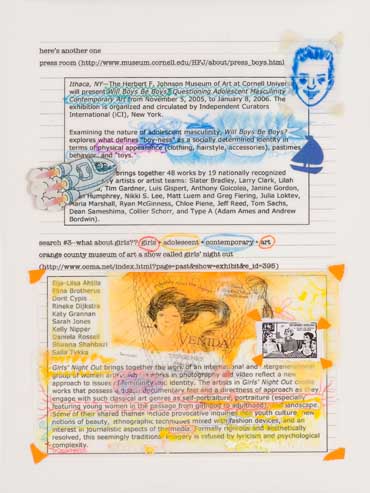 here's another one
press room (http://www.museum.cornell.edu/HFJ/about/press_boys.html)
Ithaca, NY—The Herbert F. Johnson Museum of Art at Cornell Univers
will present Will Boys Be Boys? Questioning Adolescent Masculinity
Contemporary Art from November 5, 2005, to January 8, 2006. The
exhibition is organized and circulated by Independent Curators
International (iCI), New York.
Examining the nature of adolescent masculinity, Will Boys Be Boys?
explores what defines "boy-ness" as a socially determined identity in
terms of physical appearance (clothing, hairstyle, accessories), pastimes
behavior, and "toys.
brings together 48 works by 19 nationally recognized
artists or artist teams: Slater Bradley, Larry Clark, Lilah
Tim Gardner, Luis Gispert, Anthony Goicolea, Janine Gordon,
Humphrey, Nikki S. Lee, Matt Luem and Greg Fiering, Julia Loktev,
Maria Marshall, Ryan McGinness, Chloe Piene, Jeff Reed, Tom Sachs,
Dean Sameshima, Collier Schorr, and Type A (Adam Ames and Andrew
Bordwin).
search #3—what about girls?? girls + adolescent + contemporary + art
orange county museum of art a show called girls' night out
(http://www.ocma.net/index.html?page=past&show=exhibit&e_id=395)
Eija-Liisa Ahtila
Elina Brotherus
Dorit Cypis
Rineke Dijkstra
Katy Grannan
Sarah Jones
Kelly Nipper
Daniela Rossell
Shirana Shahbazi
Salla Tykkä
VENIDA
Girls' Night Out brings together the work of an international and intergenerational
group of women artists works in photography and video reflect a new
approach to issues of femininity and identity. The artists in Girls' Night Out create
works that possess a documentary feel and a directness of approach as they
engage with such classical art genres as self-portraiture, portraiture (especially
featuring young women in the passage from girlhood to adulthood), landscape.
Some of their shared themes include provocative inquiries into youth culture, new
notions of beauty, ethnographic techniques mixed with fashion devices, and an
interest in journalistic aspects of the media. Formally rigorous and aesthetically
resolved, this seemingly traditional imagery is refused by lyricism and psychological
complexity.